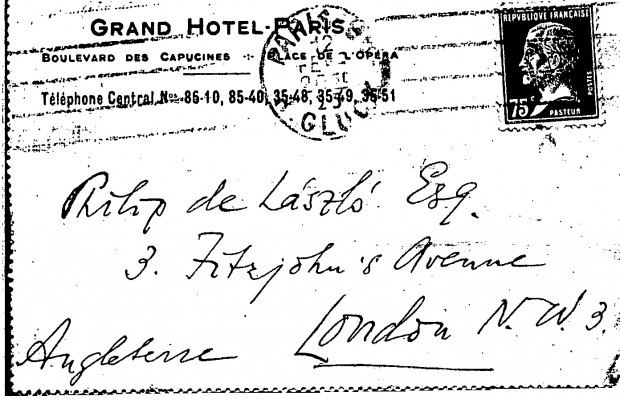 GRAND HOTEL-PARIS
BOULEVARD DES CAPUCINES + PLACE DE L'OPÉRA
Téléphone Central Nos 86-10, 85-40, 35-48, 35-49, 35-51
PARIS
GLUCK
RÉPUBLIQUE FRANÇAISE
POSTES
75c
PASTEUR
Philip de László Esq.
3. Fitzjohn's Avenue
London N.W.3.
Angleterre